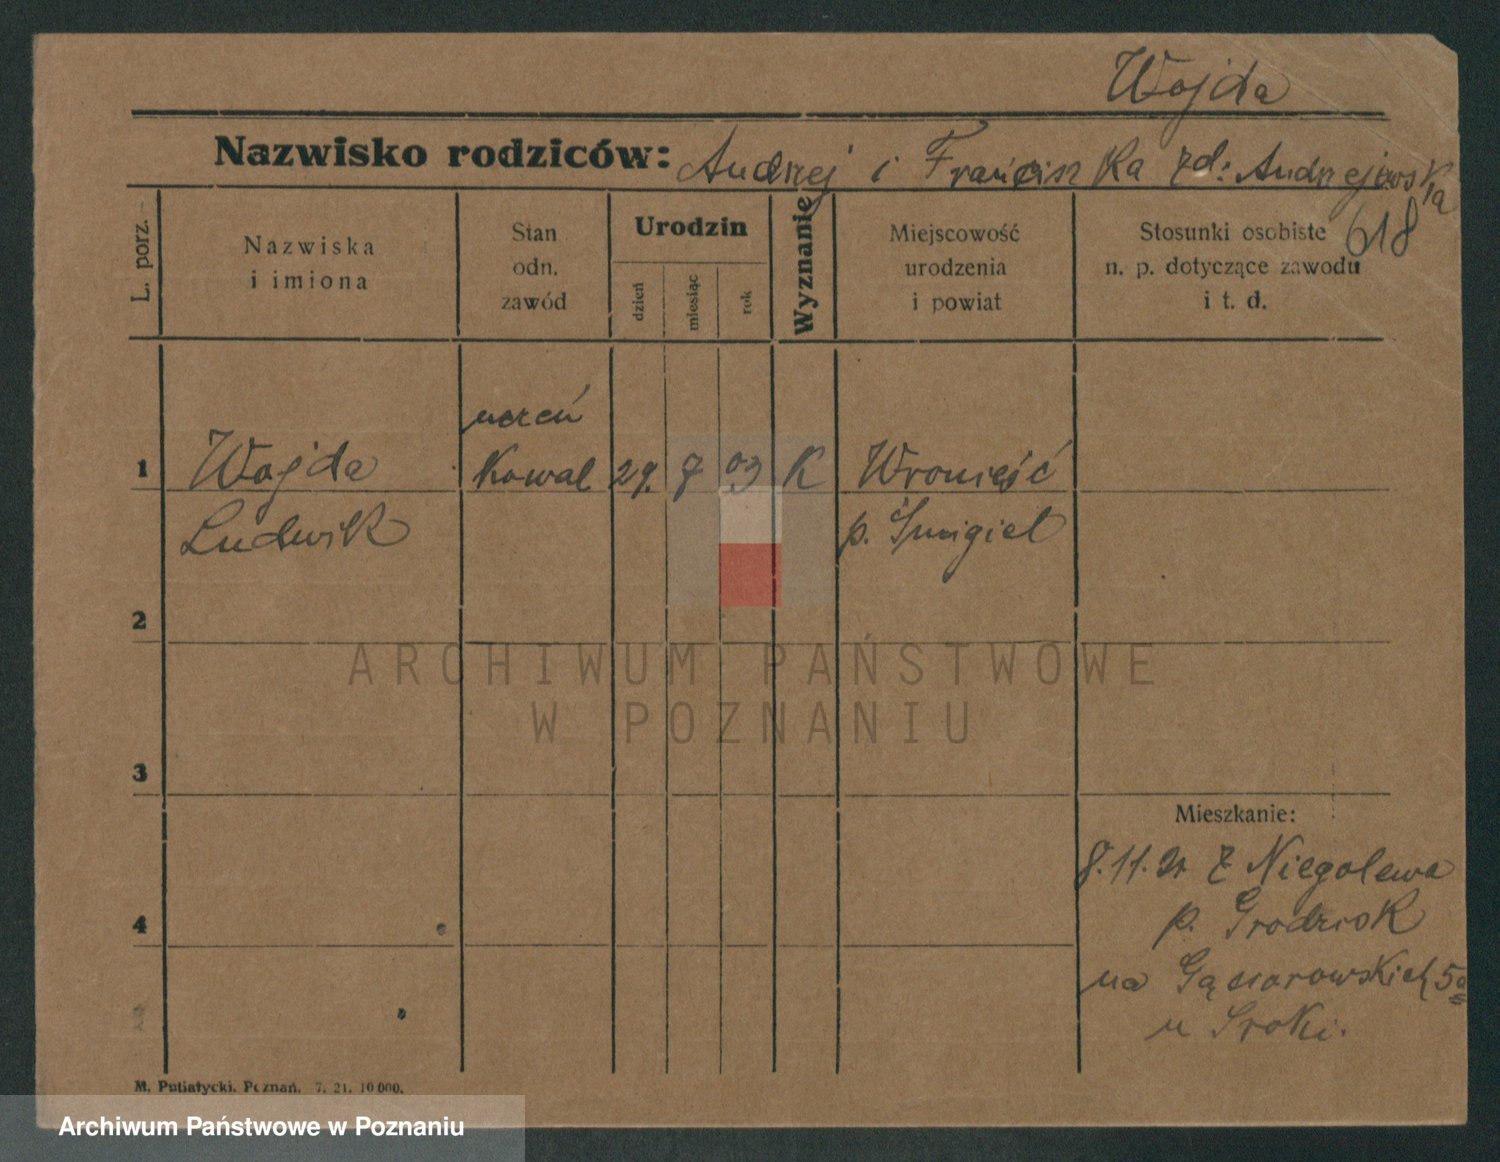 Wojda
Nazwisko rodziców: Andrzej i Franciszka zd: Andrzejewska
618
L. porz.
Nazwiska
i imiona
Stan
odn.
zawód
Urodzin
dzień
miesiąc
rok
Wyznanie
Miejscowość
urodzenia
i powiat
Stosunki osobiste
n. p. dotyczące zawodu
i t. d.
uczeń
1 Wojda Kowal 29. 7 03 K Wronieść
Ludwik p. Śmigiel
2
ARCHIWUM PAŃSTWOWE
W POZNANIU
3
Mieszkanie:
8.11.21 z Niegolewa
4 p. Grodzisk
na Gąsiorowskich 5a
u Sroki.
M. Putiatycki. Poznań. 7. 21. 10 000.
Archiwum Państwowe w Poznaniu